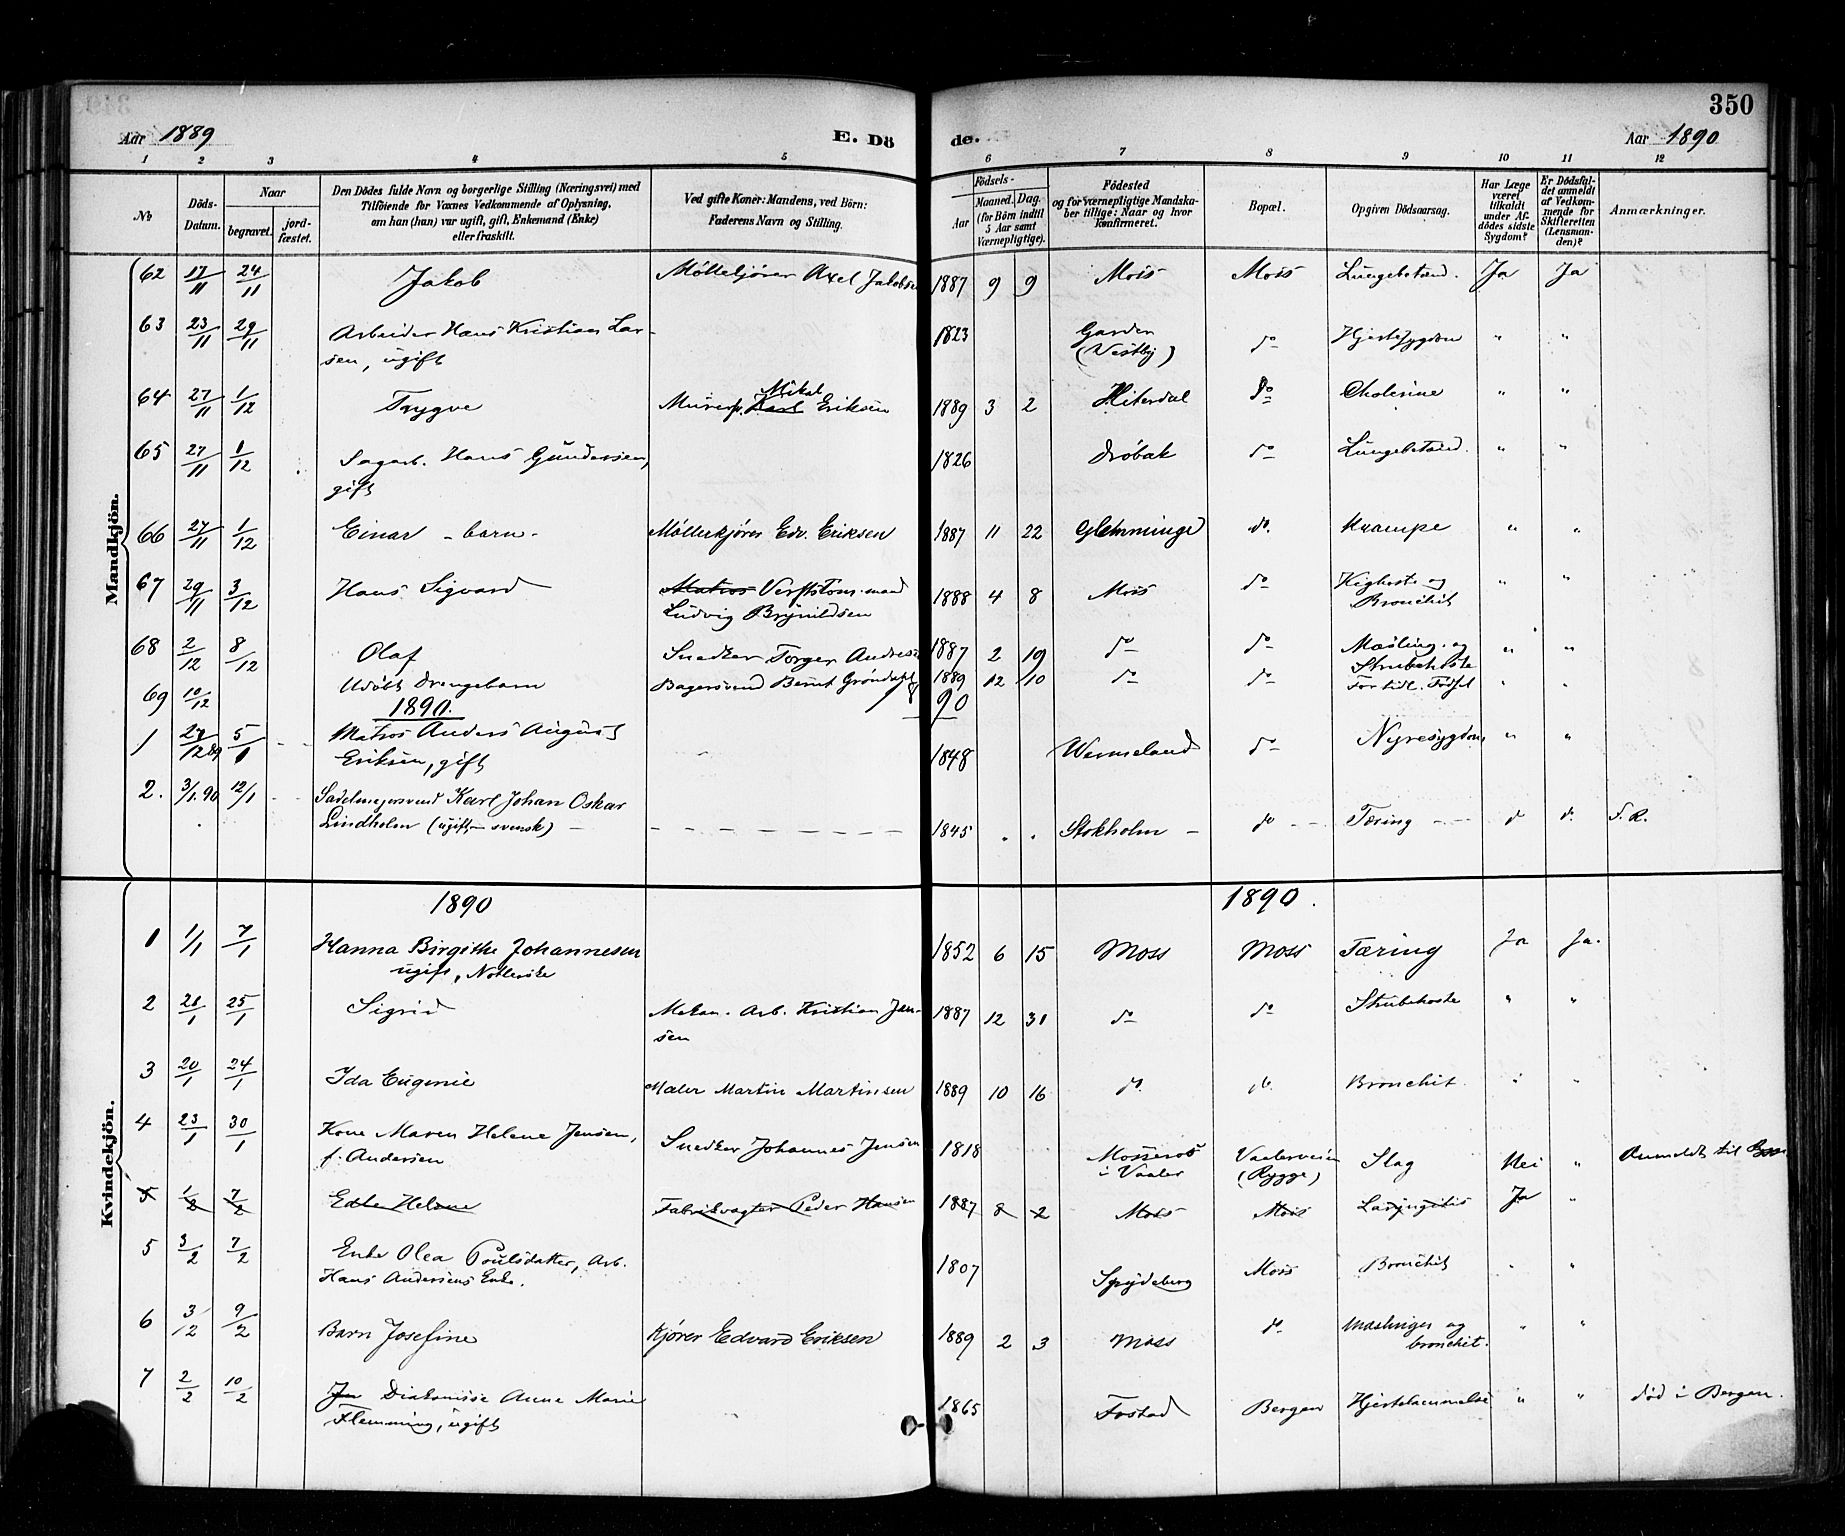 350
Aar 1889 E. Dö de. Aar 1890
1 2 3 4 5 6 7 8 9 10 11 12
No
Döds-Datum.
Naar
begravet. jord-fæstet.
Den Dödes fulde Navn og borgerlige Stilling (Næringsvei) med
Tilföiende for Vaxnes Vedkommende af Oplysning,
om han (hun) var ugift, gift, Enkemand (Enke)
eller fraskilt.
Ved gifte Koner: Mandens, ved Börn:
Faderens Navn og Stilling.
Födsels-
Aar Maaned. Dag.
(for Börn indtil
5 Aar samt
Værnepligtige).
Födested
og for værnepligtige Mandska-
ber tillige: Naar og hvor
konfirmeret.
Bopæl.
Opgiven Dödsaarsag.
Har Læge
været
tilkaldt
under Af-
dödes sidste
Sygdom?
Er Dödsfal-
det anmeldt
af Vedkom-
mende for
Skifteretten
(Lensman-
den)?
Anmærkninger.
Mandkjön.
62 17/11 24/11 Jakob Møllekjører Axel Jakobsen 1887 9 9 Moss Moss Lungebetænd. Ja Ja
63 23/11 29/11 Arbeider Hans Kristian Lar-
sen, ugift 1823 Garder
(Vestby) do Hjertesygdom " "
64 27/11 1/12 Trygve Murerp. Karl Mikal Eriksen 1889 3 2 Hiterdal do Cholerine " "
65 27/11 1/12 Sagarb. Hans Gundersen,
gift 1826 Drøbak do Lungebetænd. " "
66 27/11 1/12 Einar - barn - Møllerkjører Edv. Eriksen 1887 11 22 Glemminge do. Krampe " "
67 29/11 3/12 Hans Sigvard Matros Verftstøm.mand
Ludvig Brynildsen 1888 4 8 Moss do Kighoste og
Bronchit " "
68 2/12 8/12 Olaf Snedker Torger Andresen 1887 2 19 do do Mæsling. og
Strubehoste " "
69 10/12 Udøbt Drengebarn Bagersvend Bernt Grøndahl 1889 12 10 do do For tidl. Fødsel " "
1890. 1890
1 29/12 89 5/1 Matros Anders August
Eriksen, gift 1848 Wermeland do Nyresygdom " "
2. 3/1.90 12/1 Sadelmagersvend Karl Johan Oskar
Lindholm (ugift - svensk) 1845 Stokholm do Tæring do do. S. R.
Kvindekjön.
1890 1890.
1 1/1 7/1 Hanna Birgithe Johannesen
ugift, 1852 6 15 Moss Moss Tæring Ja Ja.
2 21/1 25/1 Sigrid Mekan. Arb. Kristian Jan-
sen 1887 12 31 do do Strubehoste " "
3 20/1 24/1 Ida Eugenie Maler Martin Martinsen 1889 10 16 do. do. Bronchit. " "
4 23/1 30/1 Kone Maren Helene Jensen,
f. Andersen Snedker Johannes Jensen 1818 Mosseros
i Vaaler Vaalerveien
(Rygge) Slag Nei " Anmeldt til
5 1/2 7/2 Edle Helene Fabrikvagter Peder Hansen 1887 8 2 Moss Moss Laryngitis Ja "
5 3/2 7/2 Enke Olea Poulsdatter, Arb.
Hans Andersens Enke. 1807 Spydeberg Moss Bronchit " "
6 3/2 9/2 Barn Josefine Kjører Edvard Eriksen 1889 2 3 Moss do Mæslinger og
bronchit. " "
7 2/2 10/2 Diakonisse Anne Marie
Flemming, ugift 1865 Bergen Hjertelammelse " " død i Bergen.